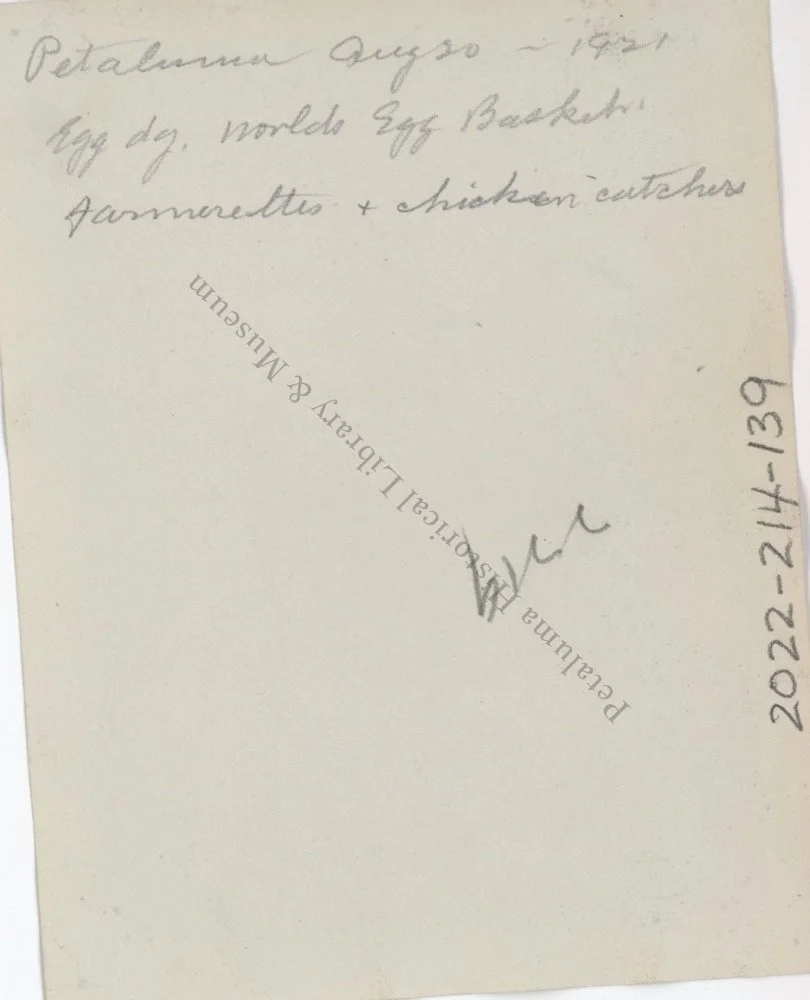 Petaluma Aug 20 - 1921
Egg dy. Worlds Egg Basket.
Farmerettes + chicken catchers
Petaluma Historical Library & Museum
2022-214-139